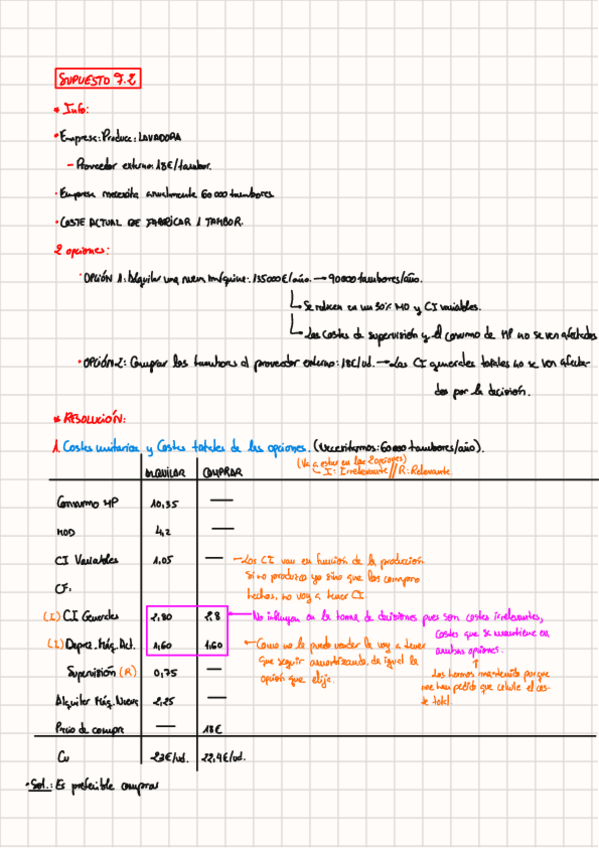 SUPUESTO 7.2
* Info:
• Empresa: Produce: LAVADORA
– Proveedor externo: 18€/tambor.
• Empresa necesita anualmente 60000 tambores
• COSTE ACTUAL DE FABRICAR 1 TAMBOR.
2 opciones:
• OPCIÓN 1: Alquilar una nueva máquina: 135000€/año. → 90000 tambores/año.
↳ Se reducen en un 30% MO y CI variables.
↳ Los costes de supervisión y el consumo de MP no se ven afectados
• OPCIÓN 2: Comprar los tambores al proveedor externo: 18€/ud. → Los CI generales totales no se ven afecta-
dos por la decisión.
* RESOLUCIÓN:
1. Costes unitarios y Costes totales de las opciones. (Necesitamos: 60000 tambores/año).
(Va a estar en las 2 opciones)
ALQUILAR COMPRAR I: Irrelevante // R: Relevante
Consumo MP 10,35 —
MOD 4,2 —
CI Variables 1,05 — – Los CI van en función de la producción
si no produzco ya sino que los compro
CF: hechos, no voy a tener CI.
(I) CI Generales 2,80 2,8 ← No influyen en la toma de decisiones pues son costes irrelevantes,
costes que se mantiene en
(I) Deprec. Máq. Act. 1,60 1,60 ← Como no la puedo vender la voy a tener ambas opciones.
que seguir amortizando, da igual la
opción que elija.
Supervisión (R) 0,75 — Los hemos mantenido porque
nos han pedido que calcule el cos-
te total.
Alquiler Máq. Nueva 2,25 —
Precio de compra — 18€
Cu 23€/ud. 22,4€/ud.
• Sol.: Es preferible comprar